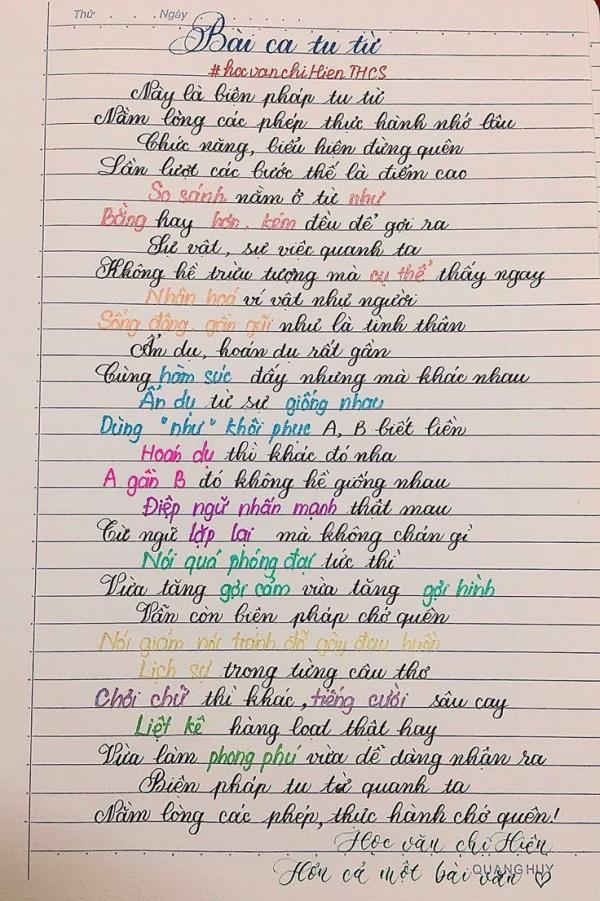 Thứ . . . . . Ngày
Bài ca tu từ
#hocvanchiHien THCS
Này là biện pháp tu từ
Nằm lòng các phép thực hành nhớ lâu
Chức năng, biểu hiện đừng quên
Lần lượt các bước thế là điểm cao
So sánh nằm ở từ như
Bằng hay hơn, kém đều để gợi ra
Sự vật, sự việc quanh ta
Không hề trừu tượng mà cụ thể thấy ngay
Nhân hoá ví vật như người
Sống động, gần gũi như là tình thân
Ẩn dụ, hoán dụ rất gần
Cùng hàm súc đấy nhưng mà khác nhau
Ẩn dụ từ sự giống nhau
Dùng "như" khôi phục A, B biết liền
Hoán dụ thì khác đó nha
A gần B đó không hề giống nhau
Điệp ngữ nhấn mạnh thật mau
Từ ngữ lặp lại mà không chán gì
Nói quá phóng đại tức thì
Vừa tăng gợi cảm vừa tăng gợi hình
Vẫn còn biện pháp chớ quên
Nói giảm nói tránh đỡ gây đau buồn
Lịch sự trong từng câu thơ
Chơi chữ thì khác, tiếng cười sâu cay
Liệt kê hàng loạt thật hay
Vừa làm phong phú vừa dễ dàng nhận ra
Biện pháp tu từ quanh ta
Nằm lòng các phép, thực hành chớ quên!
Học văn chị Hiên
Hơn cả một bài văn ♡
QUANG HUY